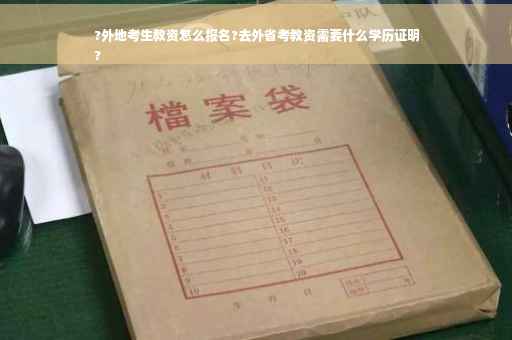 ?外地考生教资怎么报名?去外省考教资需要什么学历证明
?
檔案袋
材料目次
1 11
2 12
3 13
4 14
5 15
6 16
7 17
8 18
9 19
10 20
年月日